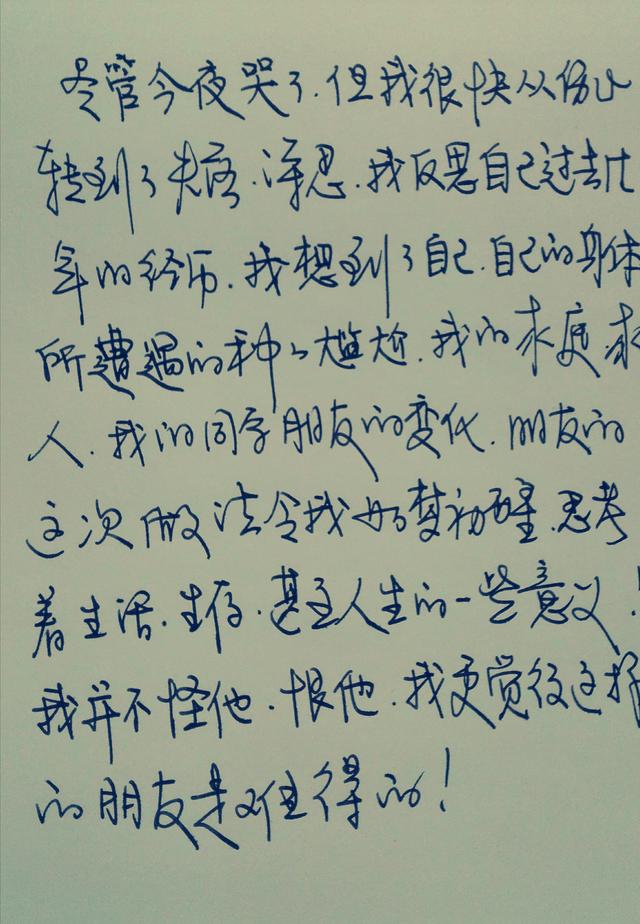 尽管今夜哭了.但我很快从伤心
转到了失落.深思.我反思自己过去廿
年的经历.我想到了自己.自己的身体
所遭遇的种种尴尬.我的家庭家
人.我的同学朋友的变化.朋友的
这次做法令我如梦初醒.思考
着生活.生存.甚至人生的一些意义!
我并不怪他.恨他.我更觉得这样
的朋友是难得的!